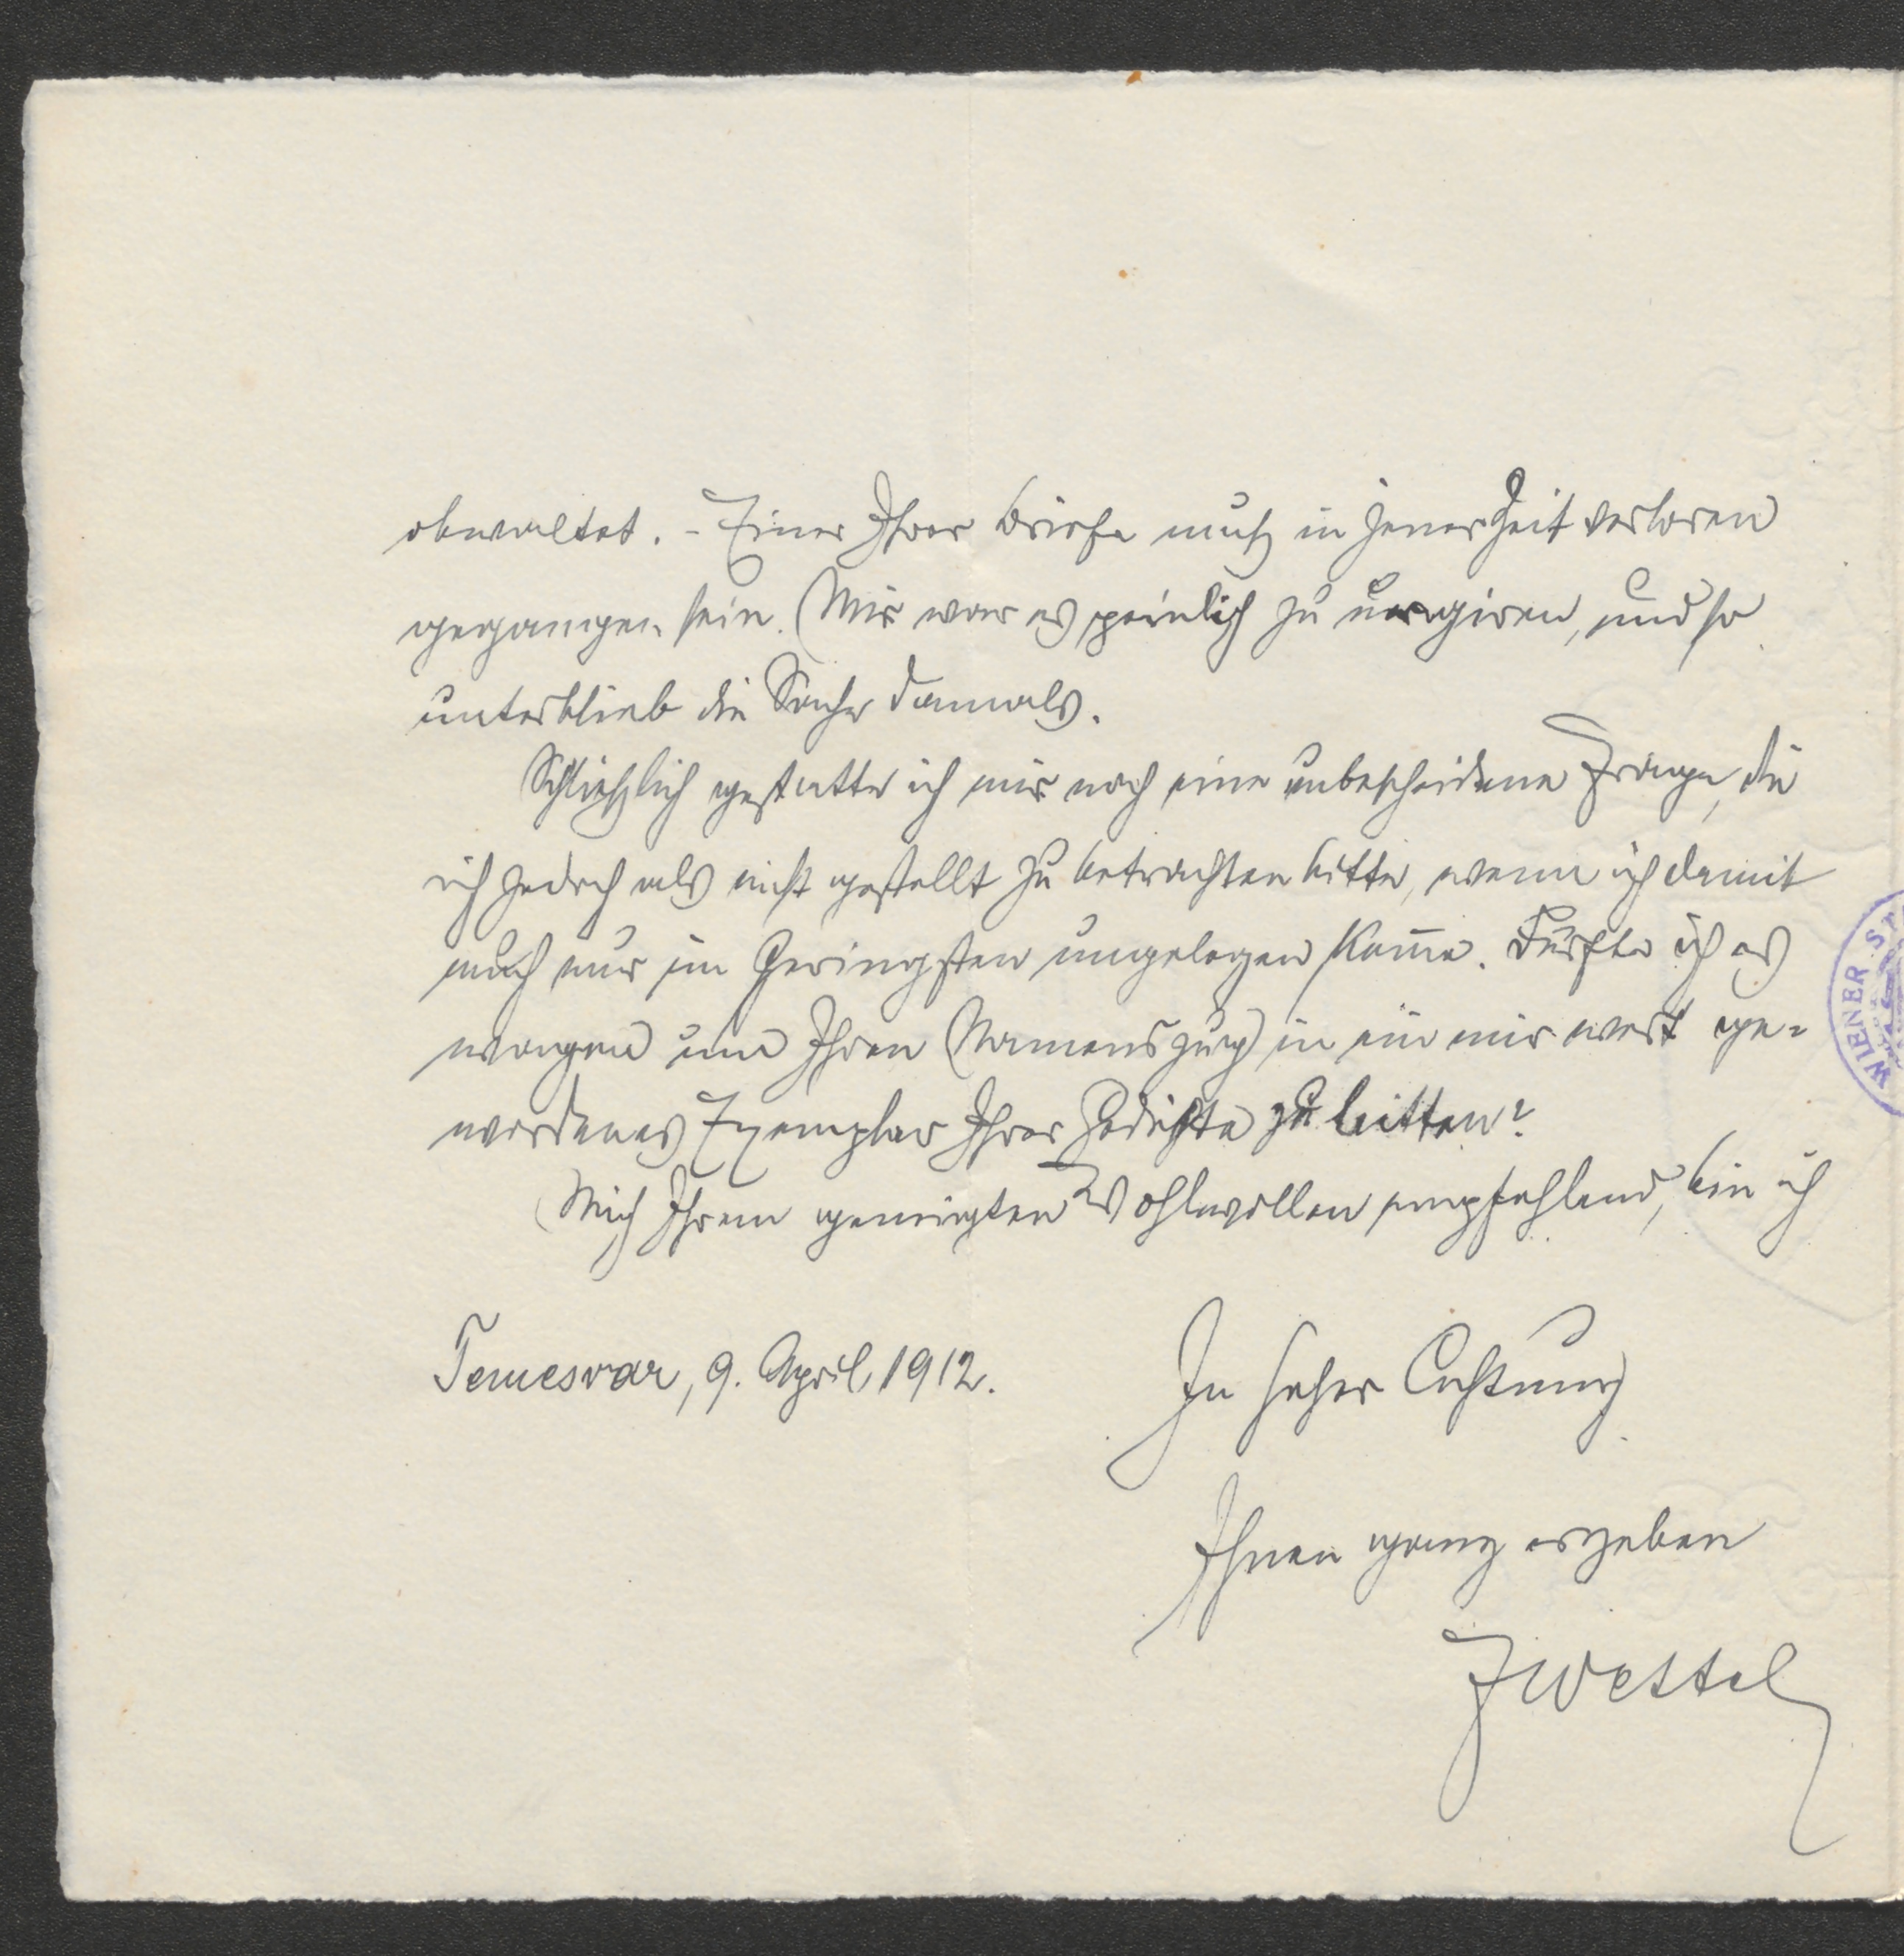 obwaltet. - Einer Ihrer Briefe muß in jener Zeit verloren
gegangen sein. Mir war es peinlich zu urgiren, und so
unterblieb die Sache damals.
Schließlich gestatte ich mir noch eine unbescheidene Frage, die
ich jedoch als nicht gestellt zu betrachten bitte, wenn ich damit
auch nur im Geringsten ungelegen kom̅e. Dürfte ich es
wagen um Ihren Namenszug in ein mir wert ge=
wordenes Exemplar Ihrer Gedichte zu bitten?
Mich Ihrem geneigten Wohlwollen empfehlend, bin ich
Temesvar, 9. April 1912.
In hoher Achtung
Ihnen ganz ergeben
WIENER